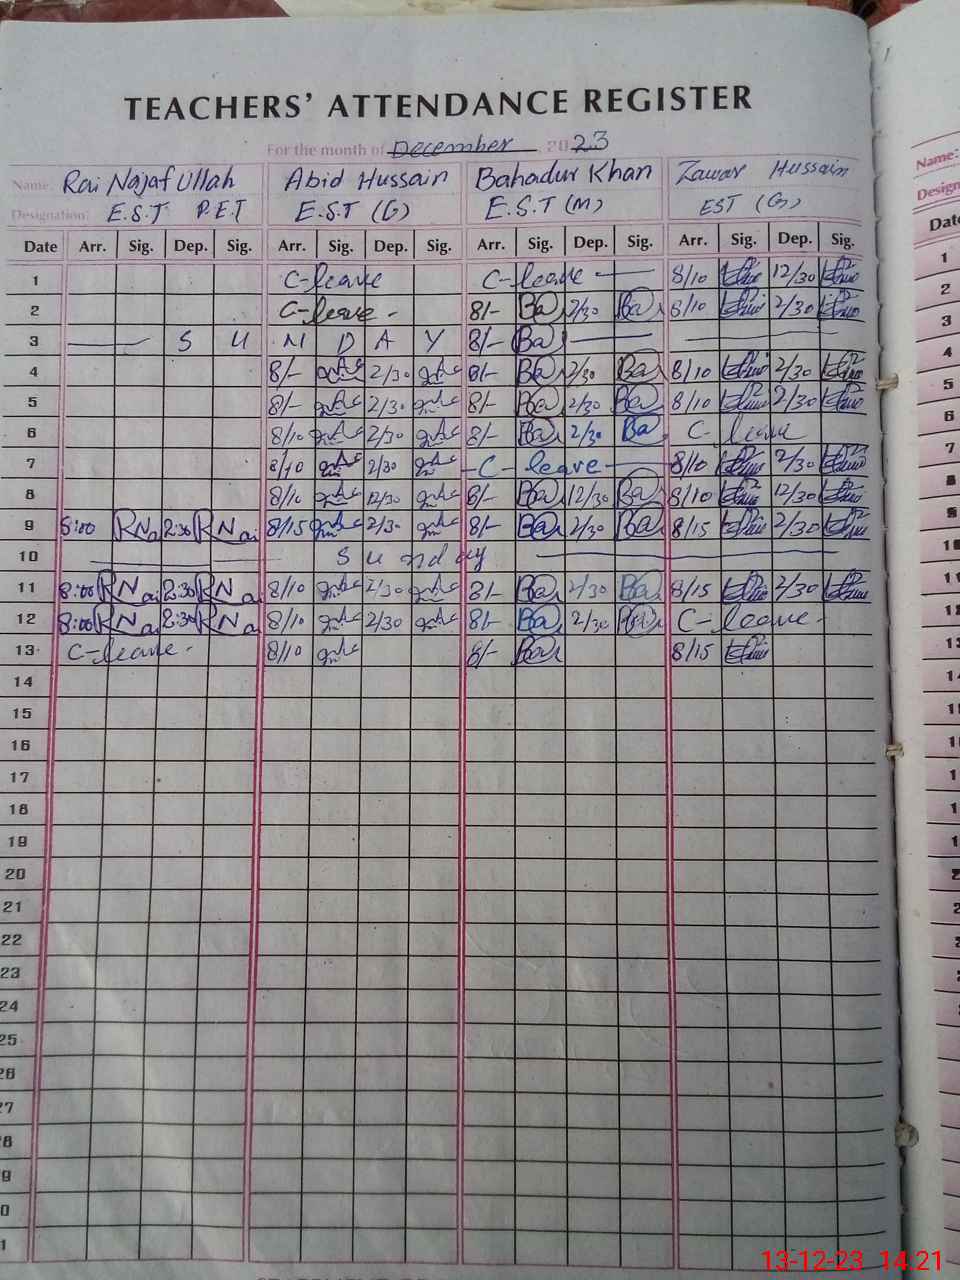 TEACHERS' ATTENDANCE REGISTER
For the month of December 2023
Name: Rai Najaf Ullah Abid Hussain Bahadur Khan Zawar Hussain
Designation: E.S.T P.E.T E.S.T (G) E.S.T (M) EST (G)
Date Arr. Sig. Dep. Sig. Arr. Sig. Dep. Sig. Arr. Sig. Dep. Sig. Arr. Sig. Dep. Sig.
1 C-leave C-leave 8/10 12/30
2 C-leave - 8/- Ba 2/30 Ba 8/10 2/30
3 S U N D A Y 8/- Ba
4 8/- 2/30 8/- Ba 2/30 Ba 8/10 2/30
5 8/- 2/30 8/- Ba 2/30 Ba 8/10 2/30
6 8/10 2/30 8/- Ba 2/30 Ba C- leave
7 8/10 2/30 C- leave 8/10 2/30
8 8/10 12/30 8/- Ba 12/30 Ba 8/10 12/30
9 8:00 RNai 2:30 RNai 8/15 2/30 8/- Ba 2/30 Ba 8/15 2/30
10 Sunday
11 8:00 RNai 2:30 RNai 8/10 2/30 8/- Ba 2/30 Ba 8/15 2/30
12 8:00 RNai 2:30 RNai 8/10 2/30 8/- Ba 2/30 Ba C- leave -
13 C-leave - 8/10 8/- Ba 8/15
14
15
16
17
18
19
20
21
22
23
24
25
26
27
8
9
0
1
Name:
Design
Date
1
2
3
4
5
6
7
13-12-23 14:21